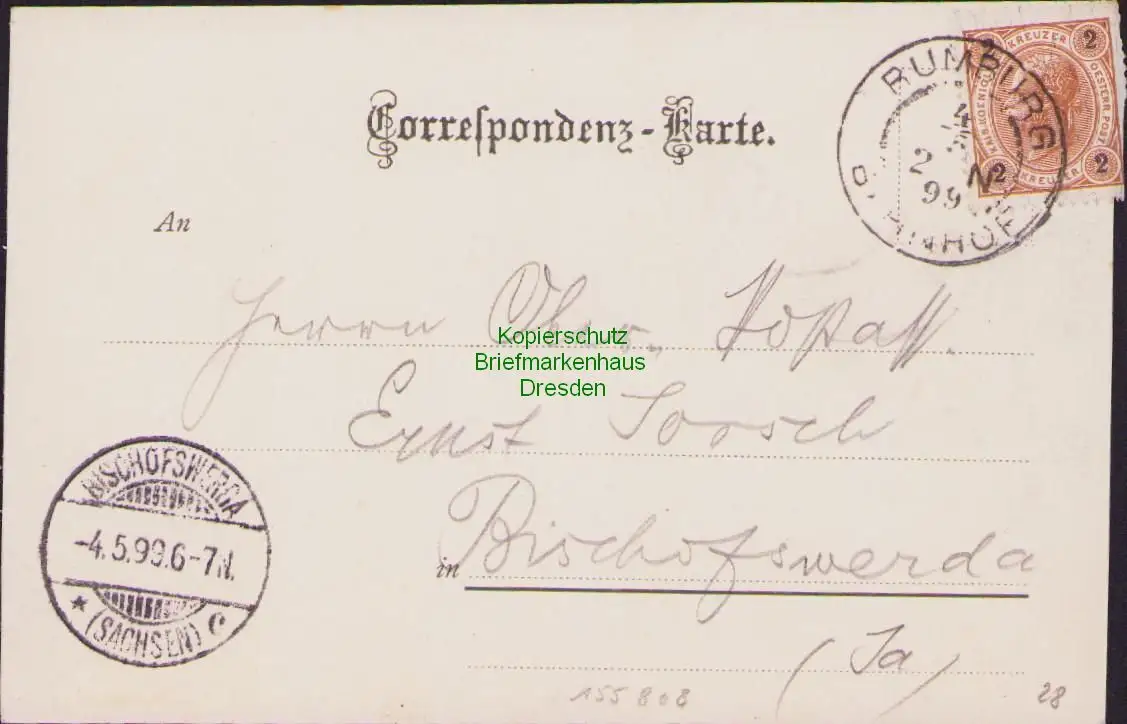 Correspondenz-Karte.
RUMBURG
4
5
2 N
99
BAHNHOF
2 KREUZER 2
KAIS. KOENIGL. OESTERR. POST
2 KREUZER 2
An
Herrn Ober-Postass.
Ernst Sorsch
in Bischofswerda
(Sa)
Kopierschutz
Briefmarkenhaus
Dresden
BISCHOFSWERDA
-4.5.99.6-7N.
* (SACHSEN) c
155808
28